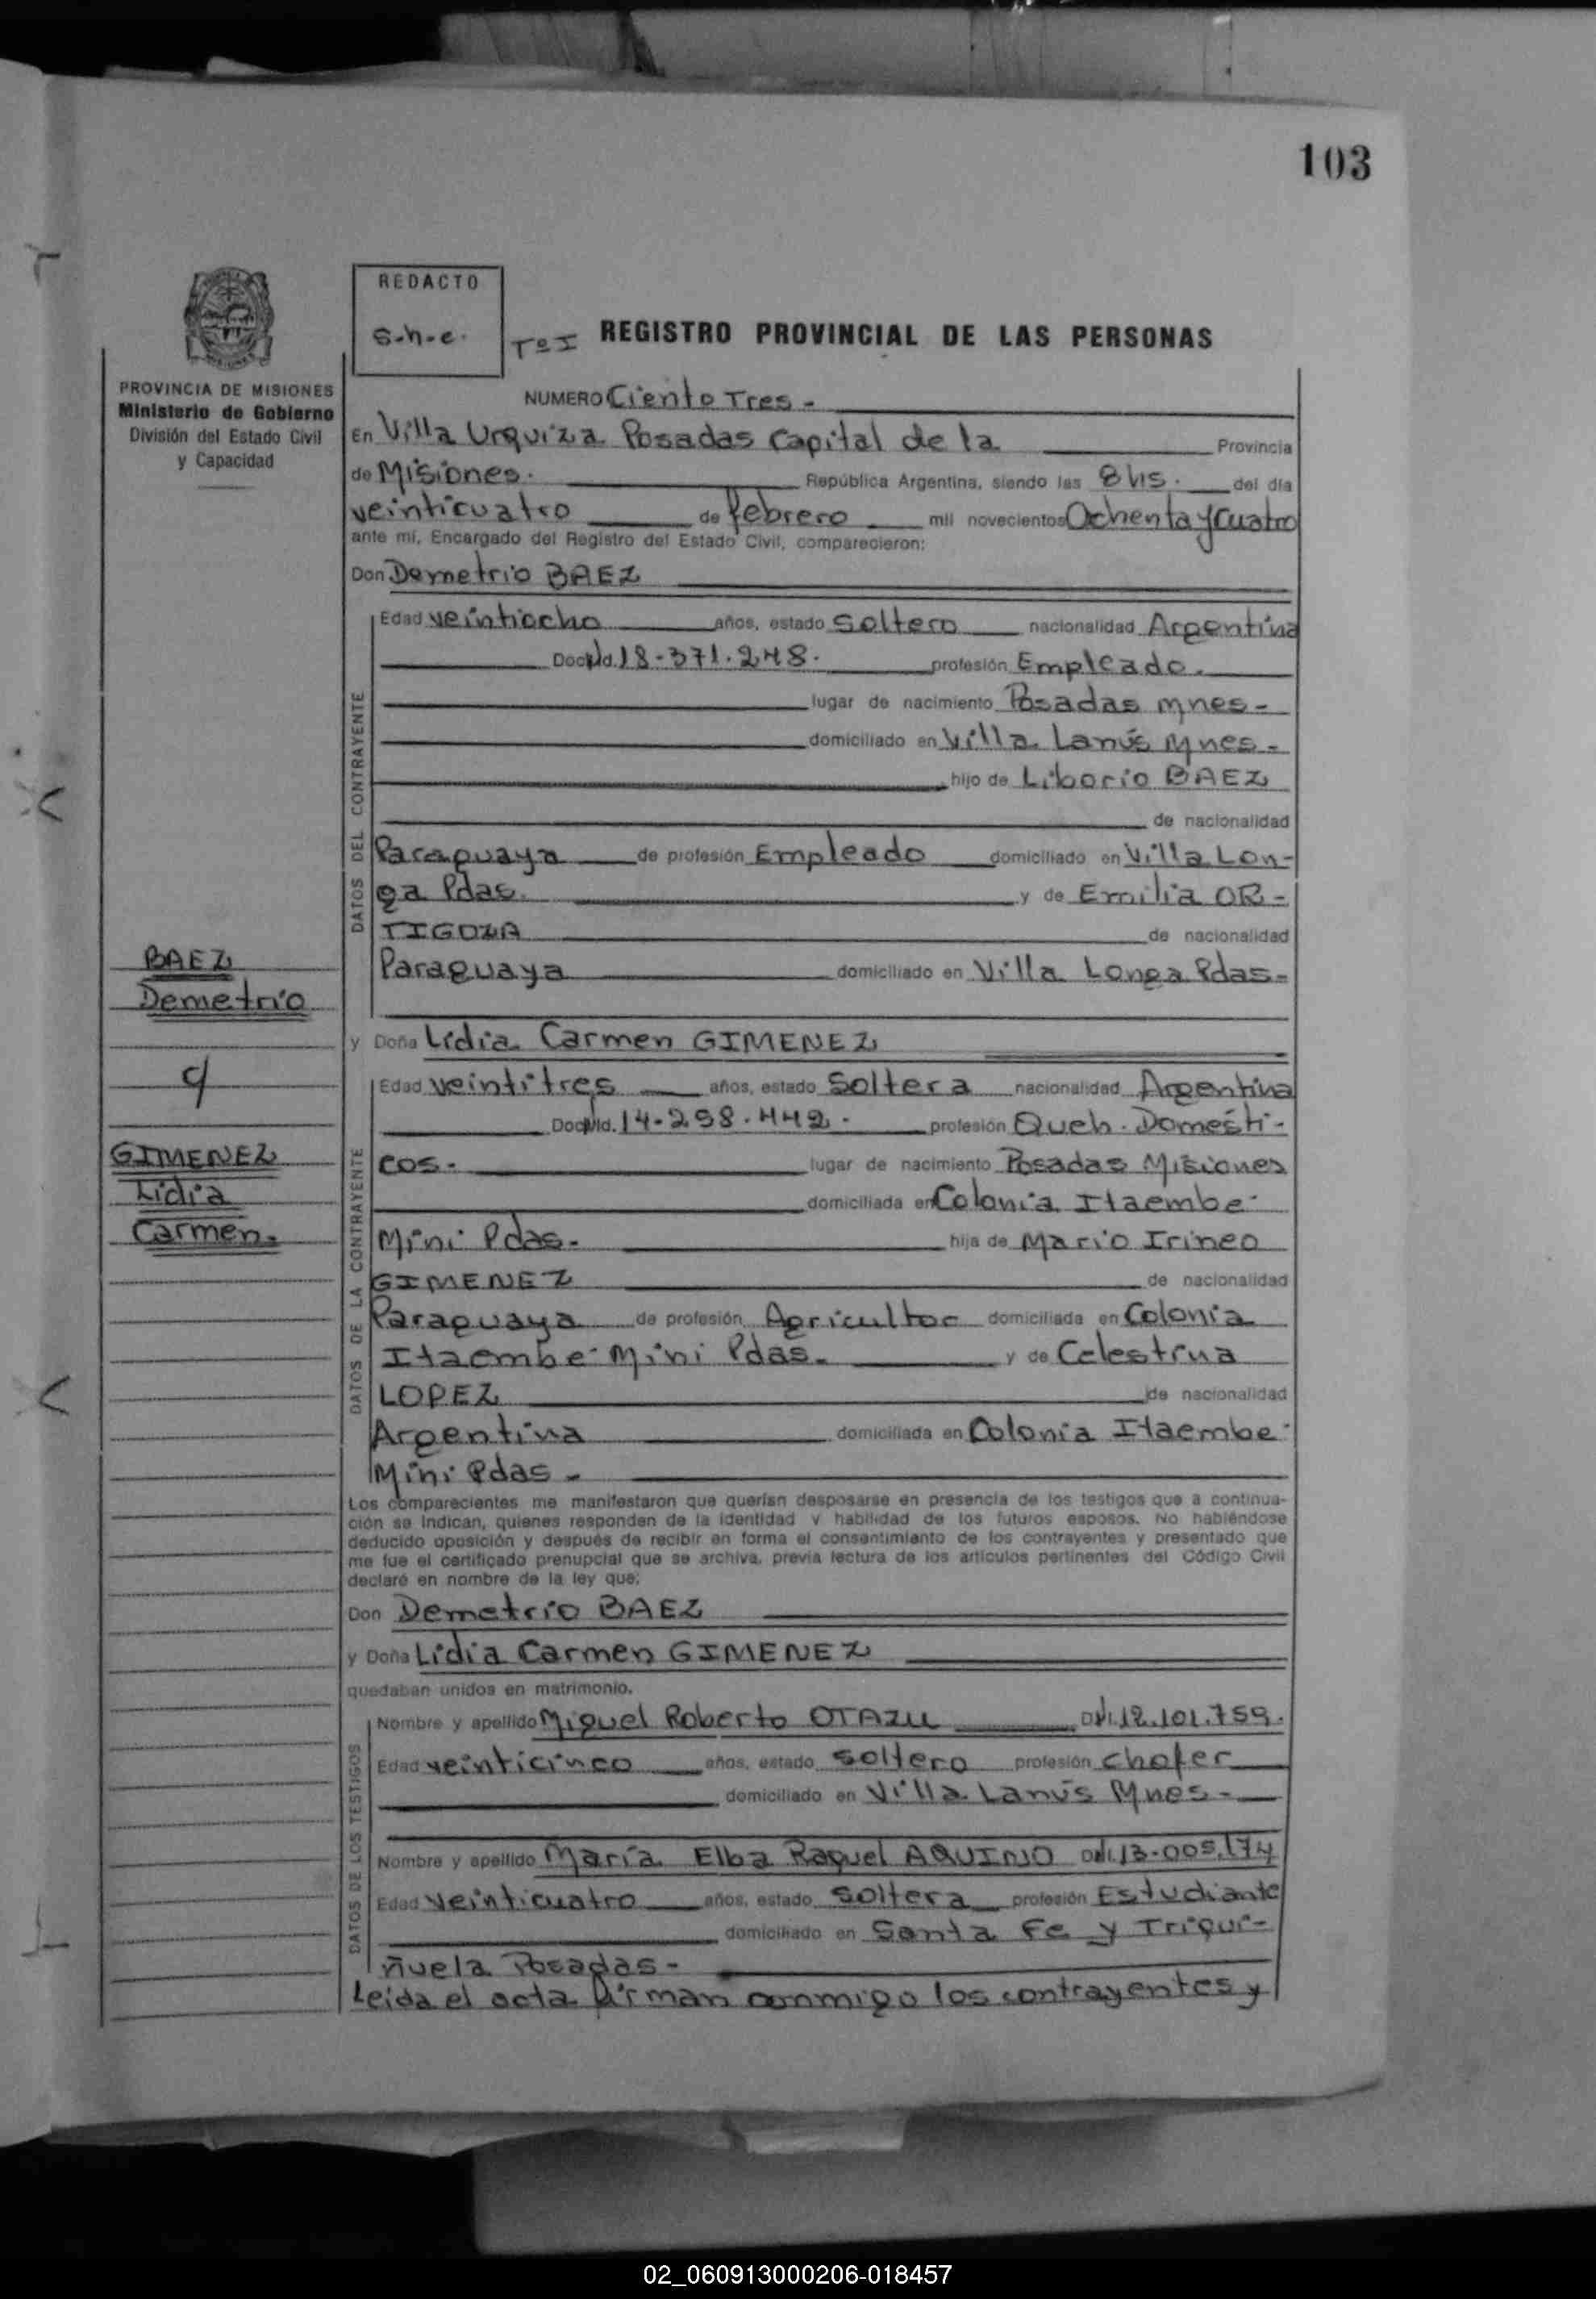 103
REDACTO
s-h-e.
Tº I REGISTRO PROVINCIAL DE LAS PERSONAS
PROVINCIA DE MISIONES
Ministerio de Gobierno
División del Estado Civil
y Capacidad
NUMERO Ciento Tres -
En Villa Urquiza Posadas Capital de la Provincia
de Misiones. República Argentina, siendo las 8 hs. del día
veinticuatro de febrero mil novecientos Ochenta y cuatro
ante mí, Encargado del Registro del Estado Civil, comparecieron:
Don Demetrio BAEZ
DATOS DEL CONTRAYENTE
Edad veintiocho años, estado Soltero nacionalidad Argentina
Doc. Id. 18-371.248. profesión Empleado.
lugar de nacimiento Posadas Mnes-
domiciliado en Villa Lanús Mnes-
hijo de Liborio BAEZ
de nacionalidad
Paraguaya de profesión Empleado domiciliado en Villa Lon-
ga Pdas. y de Emilia OR-
TIGOZA de nacionalidad
Paraguaya domiciliado en Villa Longa Pdas-
BAEZ
Demetrio
c/
GIMENEZ
Lidia
Carmen.
y Doña Lidia Carmen GIMENEZ
DATOS DE LA CONTRAYENTE
Edad veintitres años, estado Soltera nacionalidad Argentina
Doc. Id. 14-298.442. profesión Queh. Domésti-
cos. lugar de nacimiento Posadas Misiones
domiciliada en Colonia Itaembe-
Mini Pdas. hija de Mario Irineo
GIMENEZ de nacionalidad
Paraguaya de profesión Agricultor domiciliada en Colonia
Itaembe-Mini Pdas. y de Celestina
LOPEZ de nacionalidad
Argentina domiciliada en Colonia Itaembe-
Mini Pdas -
Los comparecientes me manifestaron que querían desposarse en presencia de los testigos que a continua-
ción se indican, quienes responden de la identidad y habilidad de los futuros esposos. No habiéndose
deducido oposición y después de recibir en forma el consentimiento de los contrayentes y presentado que
me fue el certificado prenupcial que se archiva, previa lectura de los artículos pertinentes del Código Civil
declaré en nombre de la ley que:
Don Demetrio BAEZ
y Doña Lidia Carmen GIMENEZ
quedaban unidos en matrimonio.
DATOS DE LOS TESTIGOS
Nombre y apellido Miguel Roberto OTAZU DNI. 12.101.759.
Edad veinticinco años, estado Soltero profesión chofer
domiciliado en Villa Lanús Mnes-
Nombre y apellido María Elba Raquel AQUINO DNI. 13-005.174
Edad veinticuatro años, estado Soltera profesión Estudiante
domiciliado en Santa Fe y Trigui-
ñuela Posadas-
Leída el acta firman conmigo los contrayentes y
02_060913000206-018457